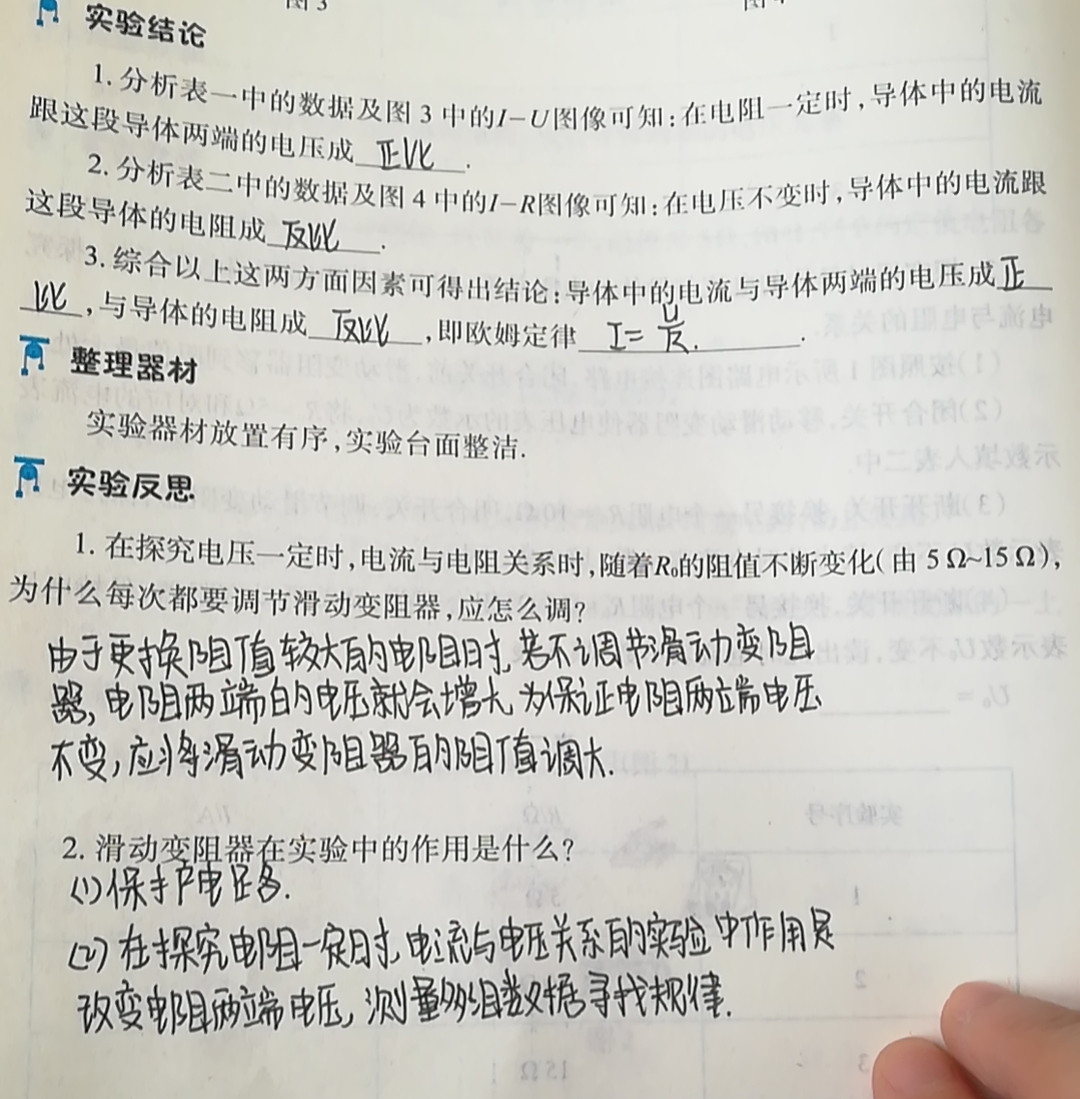 实验结论
1. 分析表一中的数据及图 3 中的I-U图像可知:在电阻一定时,导体中的电流
跟这段导体两端的电压成 正比 .
2. 分析表二中的数据及图 4 中的I-R图像可知:在电压不变时,导体中的电流跟
这段导体的电阻成 反比 .
3. 综合以上这两方面因素可得出结论:导体中的电流与导体两端的电压成 正
比 ,与导体的电阻成 反比 ,即欧姆定律 I=U/R. .
整理器材
实验器材放置有序,实验台面整洁.
实验反思
1. 在探究电压一定时,电流与电阻关系时,随着R₀的阻值不断变化(由 5 Ω~15 Ω),
为什么每次都要调节滑动变阻器,应怎么调?
由于更换阻值较大的电阻时,若不调节滑动变阻
器,电阻两端的电压就会增大,为保证电阻两端电压
不变,应将滑动变阻器的阻值调大.
2. 滑动变阻器在实验中的作用是什么?
(1)保护电路.
(2)在探究电阻一定时,电流与电压关系的实验中作用是
改变电阻两端电压,测量多组数据寻找规律.